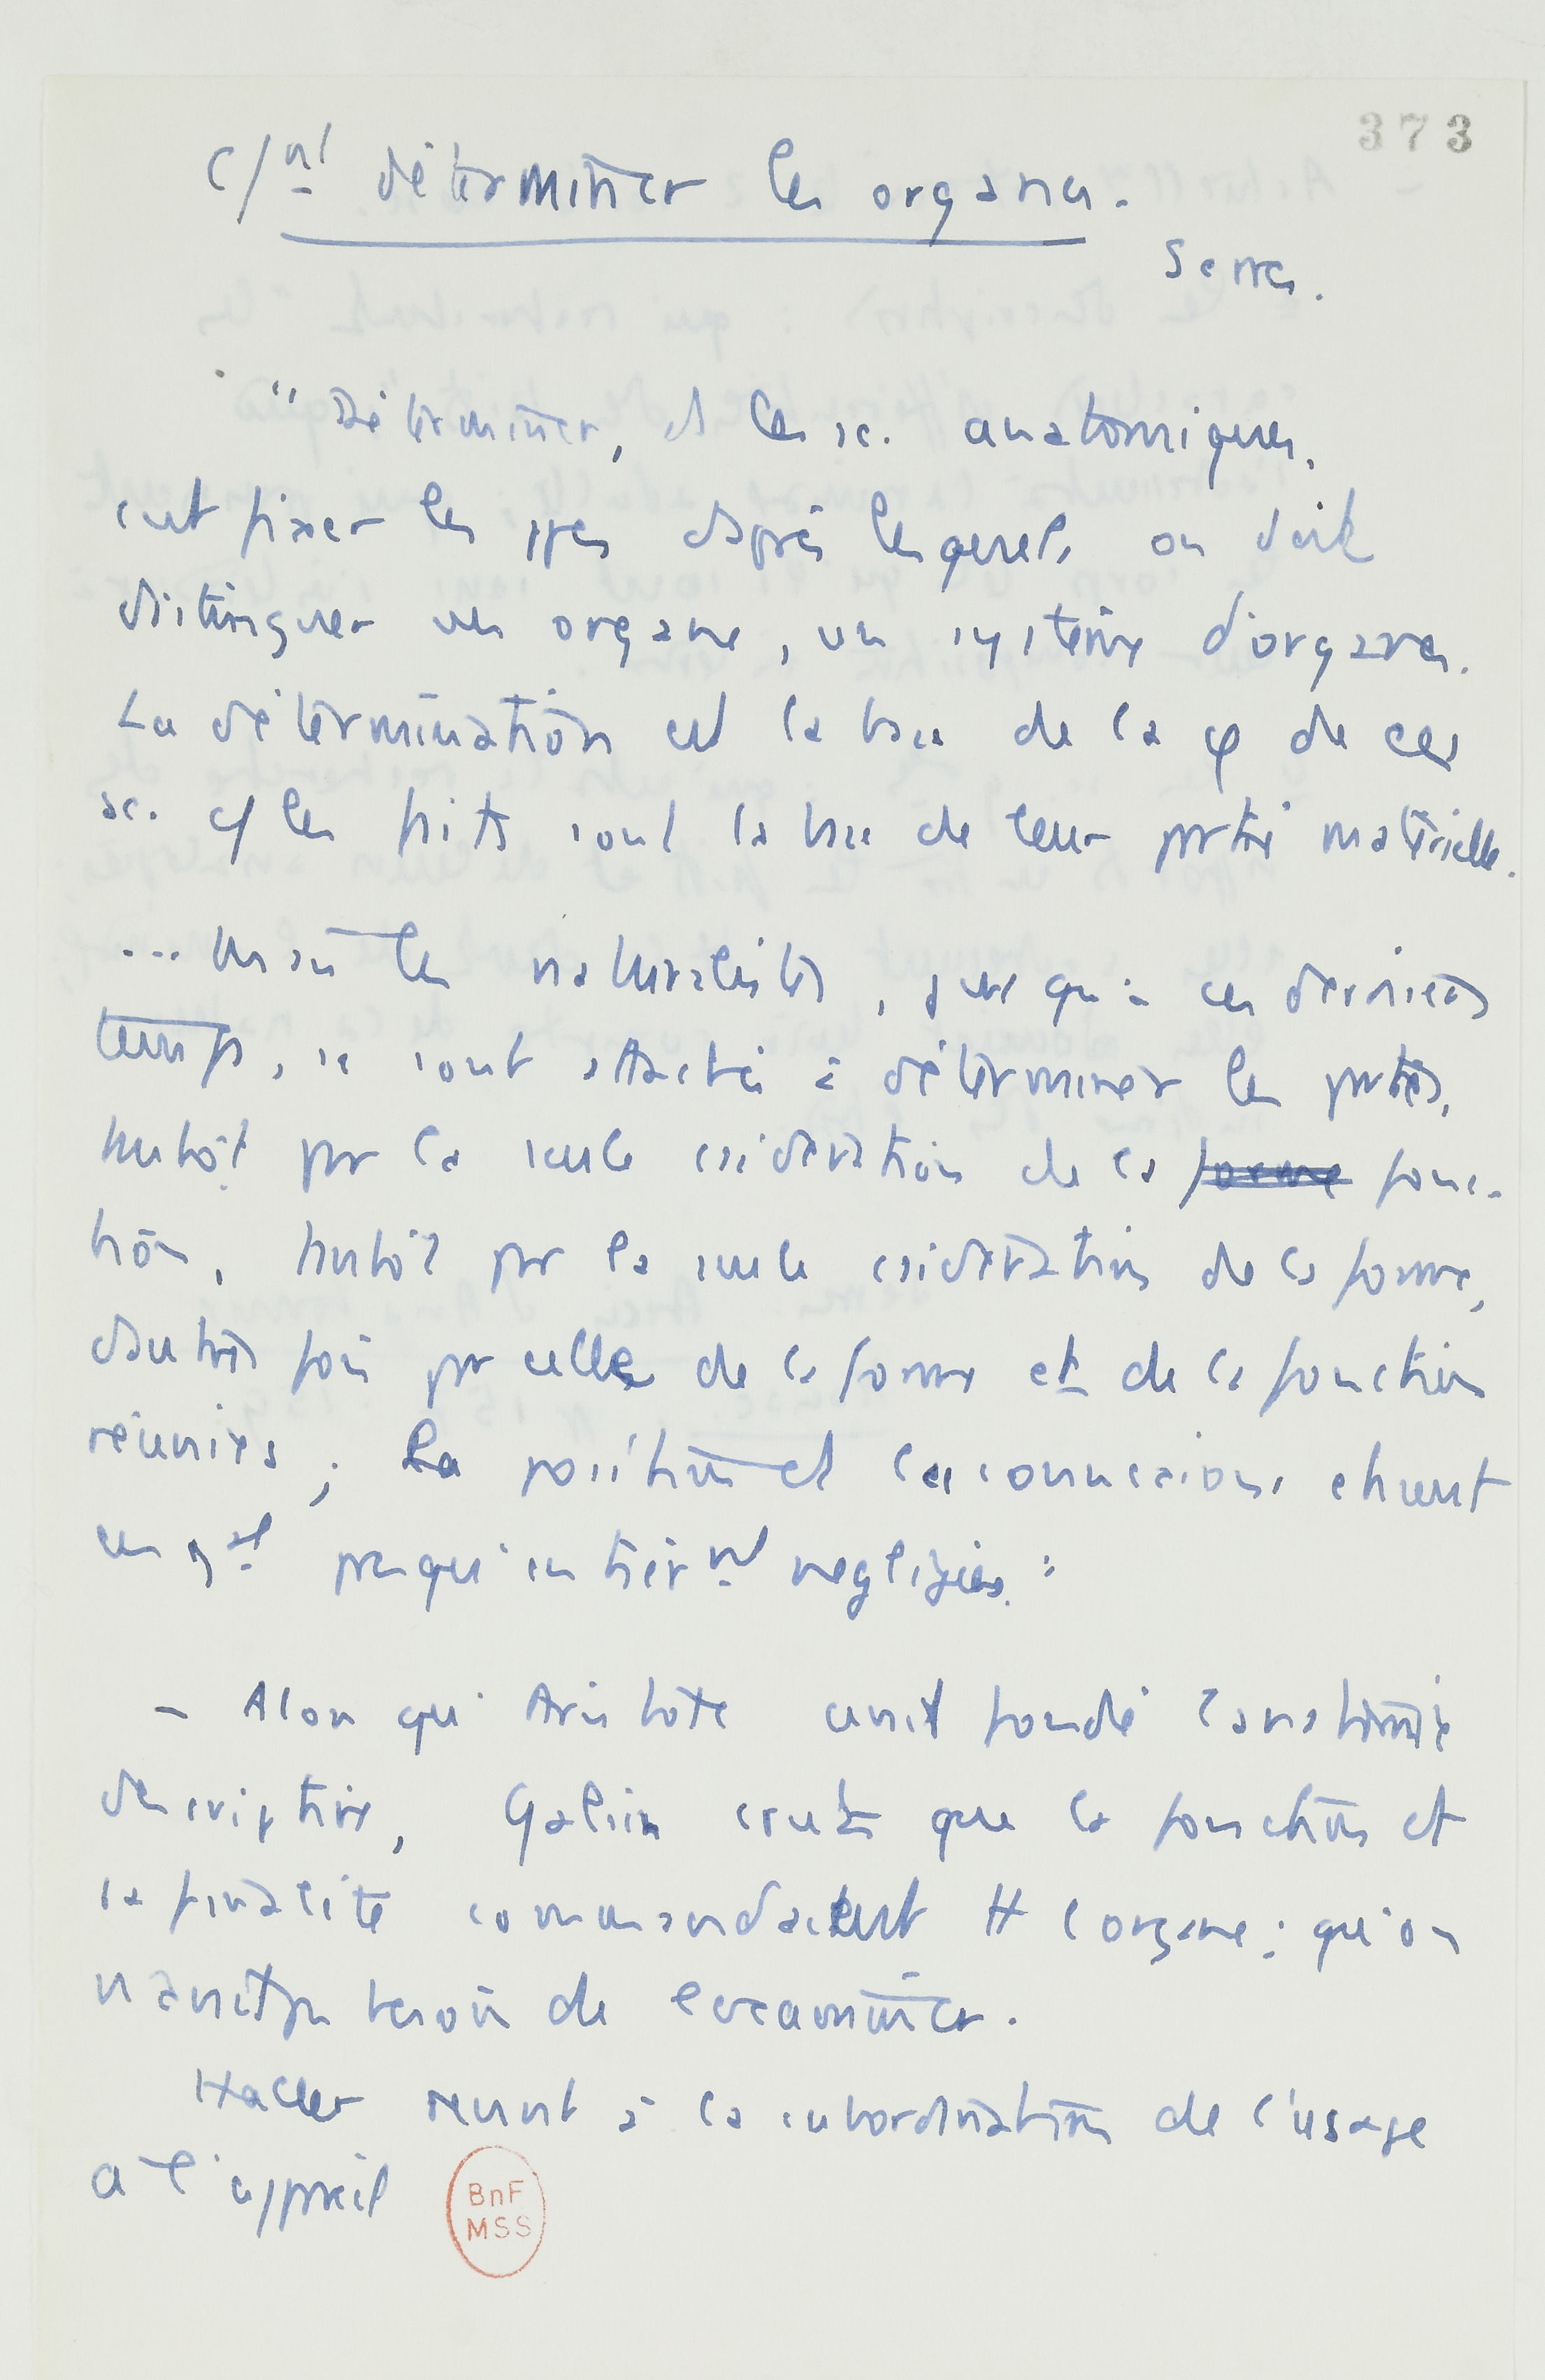 373
C/nt déterminer les organes.
Serres.
"Déterminer, ds les sc. anatomiques,
c'est fixer les ppes d'après lesquels on doit
distinguer un organe, un système d'organes.
La détermination est la base de la φ de ces
sc. c/ les faits sont la base de leur partie matérielle.
... Mais les naturalistes, jusqu'à ces derniers
temps, se sont attachés à déterminer les parties,
tantôt par la seule considération de la forme fonc-
tion, tantôt par la seule considération de la forme,
d'autres fois par celle de la forme et de la fonction
réunies ; la position et les connexions étaient
en gal presqu'entièrnt négligées."
- Alors qu'Aristote avait fondé l'anatomie
descriptive, Galien crut que la fonction et
la finalité commandaient tt l'organe : qu'on
n'avait pas besoin de l'examiner.
Haller revient à la subordination de l'usage
à l'appareil
BnF
MSS